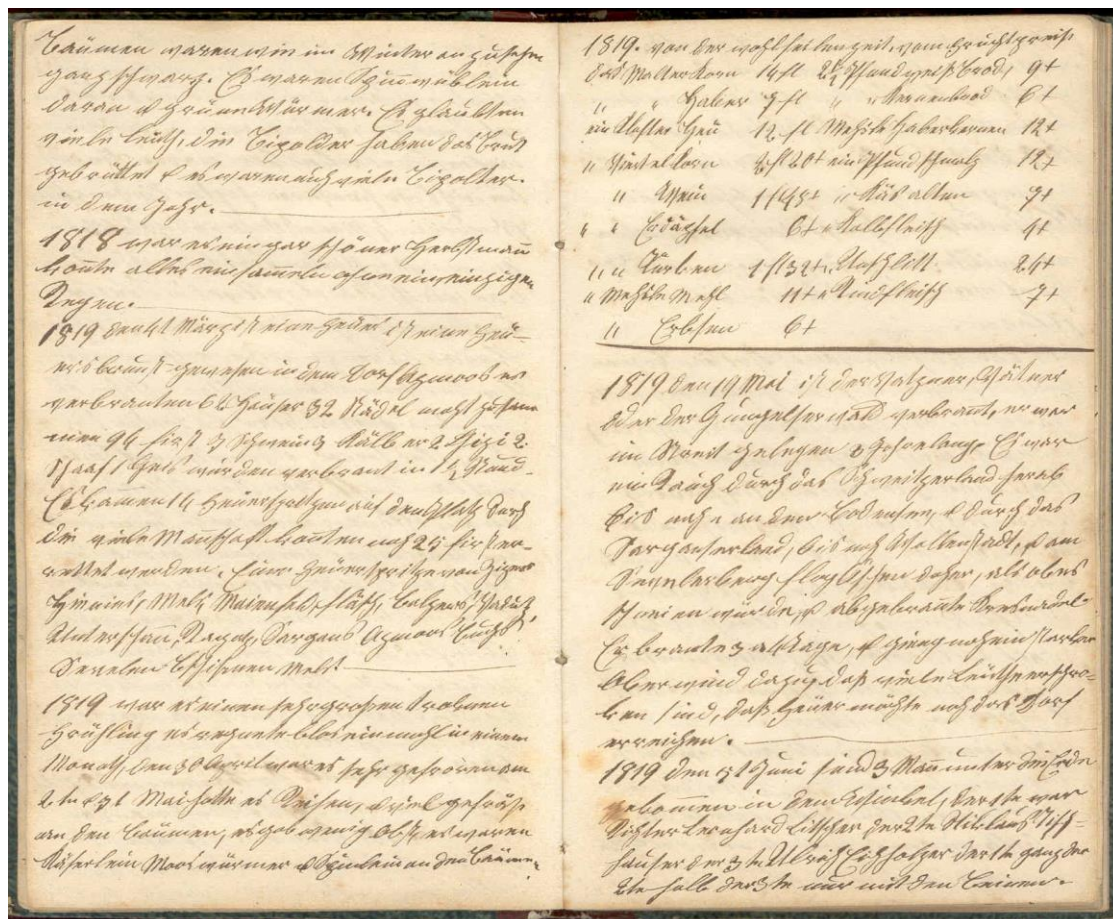 bäumen waren wie im Winter anzusehen
ganz schwarz. Es waren Spinwüblein
daran & grüne Würmer. Es glaubten
viele Leuth, die Zipolder haben das Brut
gebrüttet & es waren auch viele Zipolter
in dem Jahr.
1818 war es ein gar schöner Herbst man
konnte alles einsammeln ohne ein einzigen
Regen.
1819 den März ist eine Feuer ist eine Feü-
ersbrunst gewesen in dem Dorf Azmoos es
verbranten 62 Häuser 32 Städel macht zusam
men 94 first 3 Schwein 3 Kälber 2 Gizi 2
Schaaf 1 Geis wurden verbrant in 1½ Stund
Es kamen 14 Feüerspritzen auf den Platz durch
die viele Manschaft konnten noch 25 first er-
rettet werden. Feüerspritze von
Mels Maienfeld, Fläsch, Balzers, Vaduz
Ragatz, Sargans Azmoos Buchs
Sevelen Mels
1819 war es einen sehr großen troknen
Frühling es regnete blos ein mahl in einem
Monath, den 30 April war es sehr gefroren am
2te & 3t Mai hatte es Reifen, & viel gefröst
an den bäumen, es gab wenig Obst, es waren
Käferlein Mooswürmer & Spinlein an den Bäume
1819. von der wohlfeilen zeit, vom Fruchtpreis
das Malter Korn 14 fl 2½ Pfund weiß Brod, 9+
" " Haber 7 fl " " Kernenbrod 6+
ein Klafter Heü 12 fl Mehsle Haberkernen 12+
" Viertel Korn 20+ ein Pfund schmalz 12+
" Wein 1 f 48+ " Käs alten 7+
" " Erdäpfel 6+ " Kalbfleisch 4+
" " Türken 1 fl 32+ " Unschlitt 24+
" Mehsle Mehl 11+ " Rindfleisch 7+
" Erbsen 6+
1819 den 19 Mai ist der Vatzner, Vätner
oder der Gungelser wald verbrant, er war
im Streit gelegen 3 Jahre lang. Es war
ein Rauch durch das Schweitzerland herab
bis nach an den Bodensee, & durch das
Sarganserland, bis nach Wallenstadt, & am
Sevelerberg flog Aschen daher, als ob es
schneien würde, & abgebrannte Kresnadel
Er brante 3 al Tage, & gieng noch ein starker
Oberwind dazu, daß viele Leüthe erschro-
ken sind, daß Feüer möchte noch das Dorf
erreichen.
1819 den Juni sind 3 Man unter die Erde
gekommen in dem, der 1te war
Richter Leonhard Litscher der 2te Niklaus Tisch-
hauser der 3te Ulrich Eichholzer der 1te ganz der
2te halb der 3te nur mit den beinen.